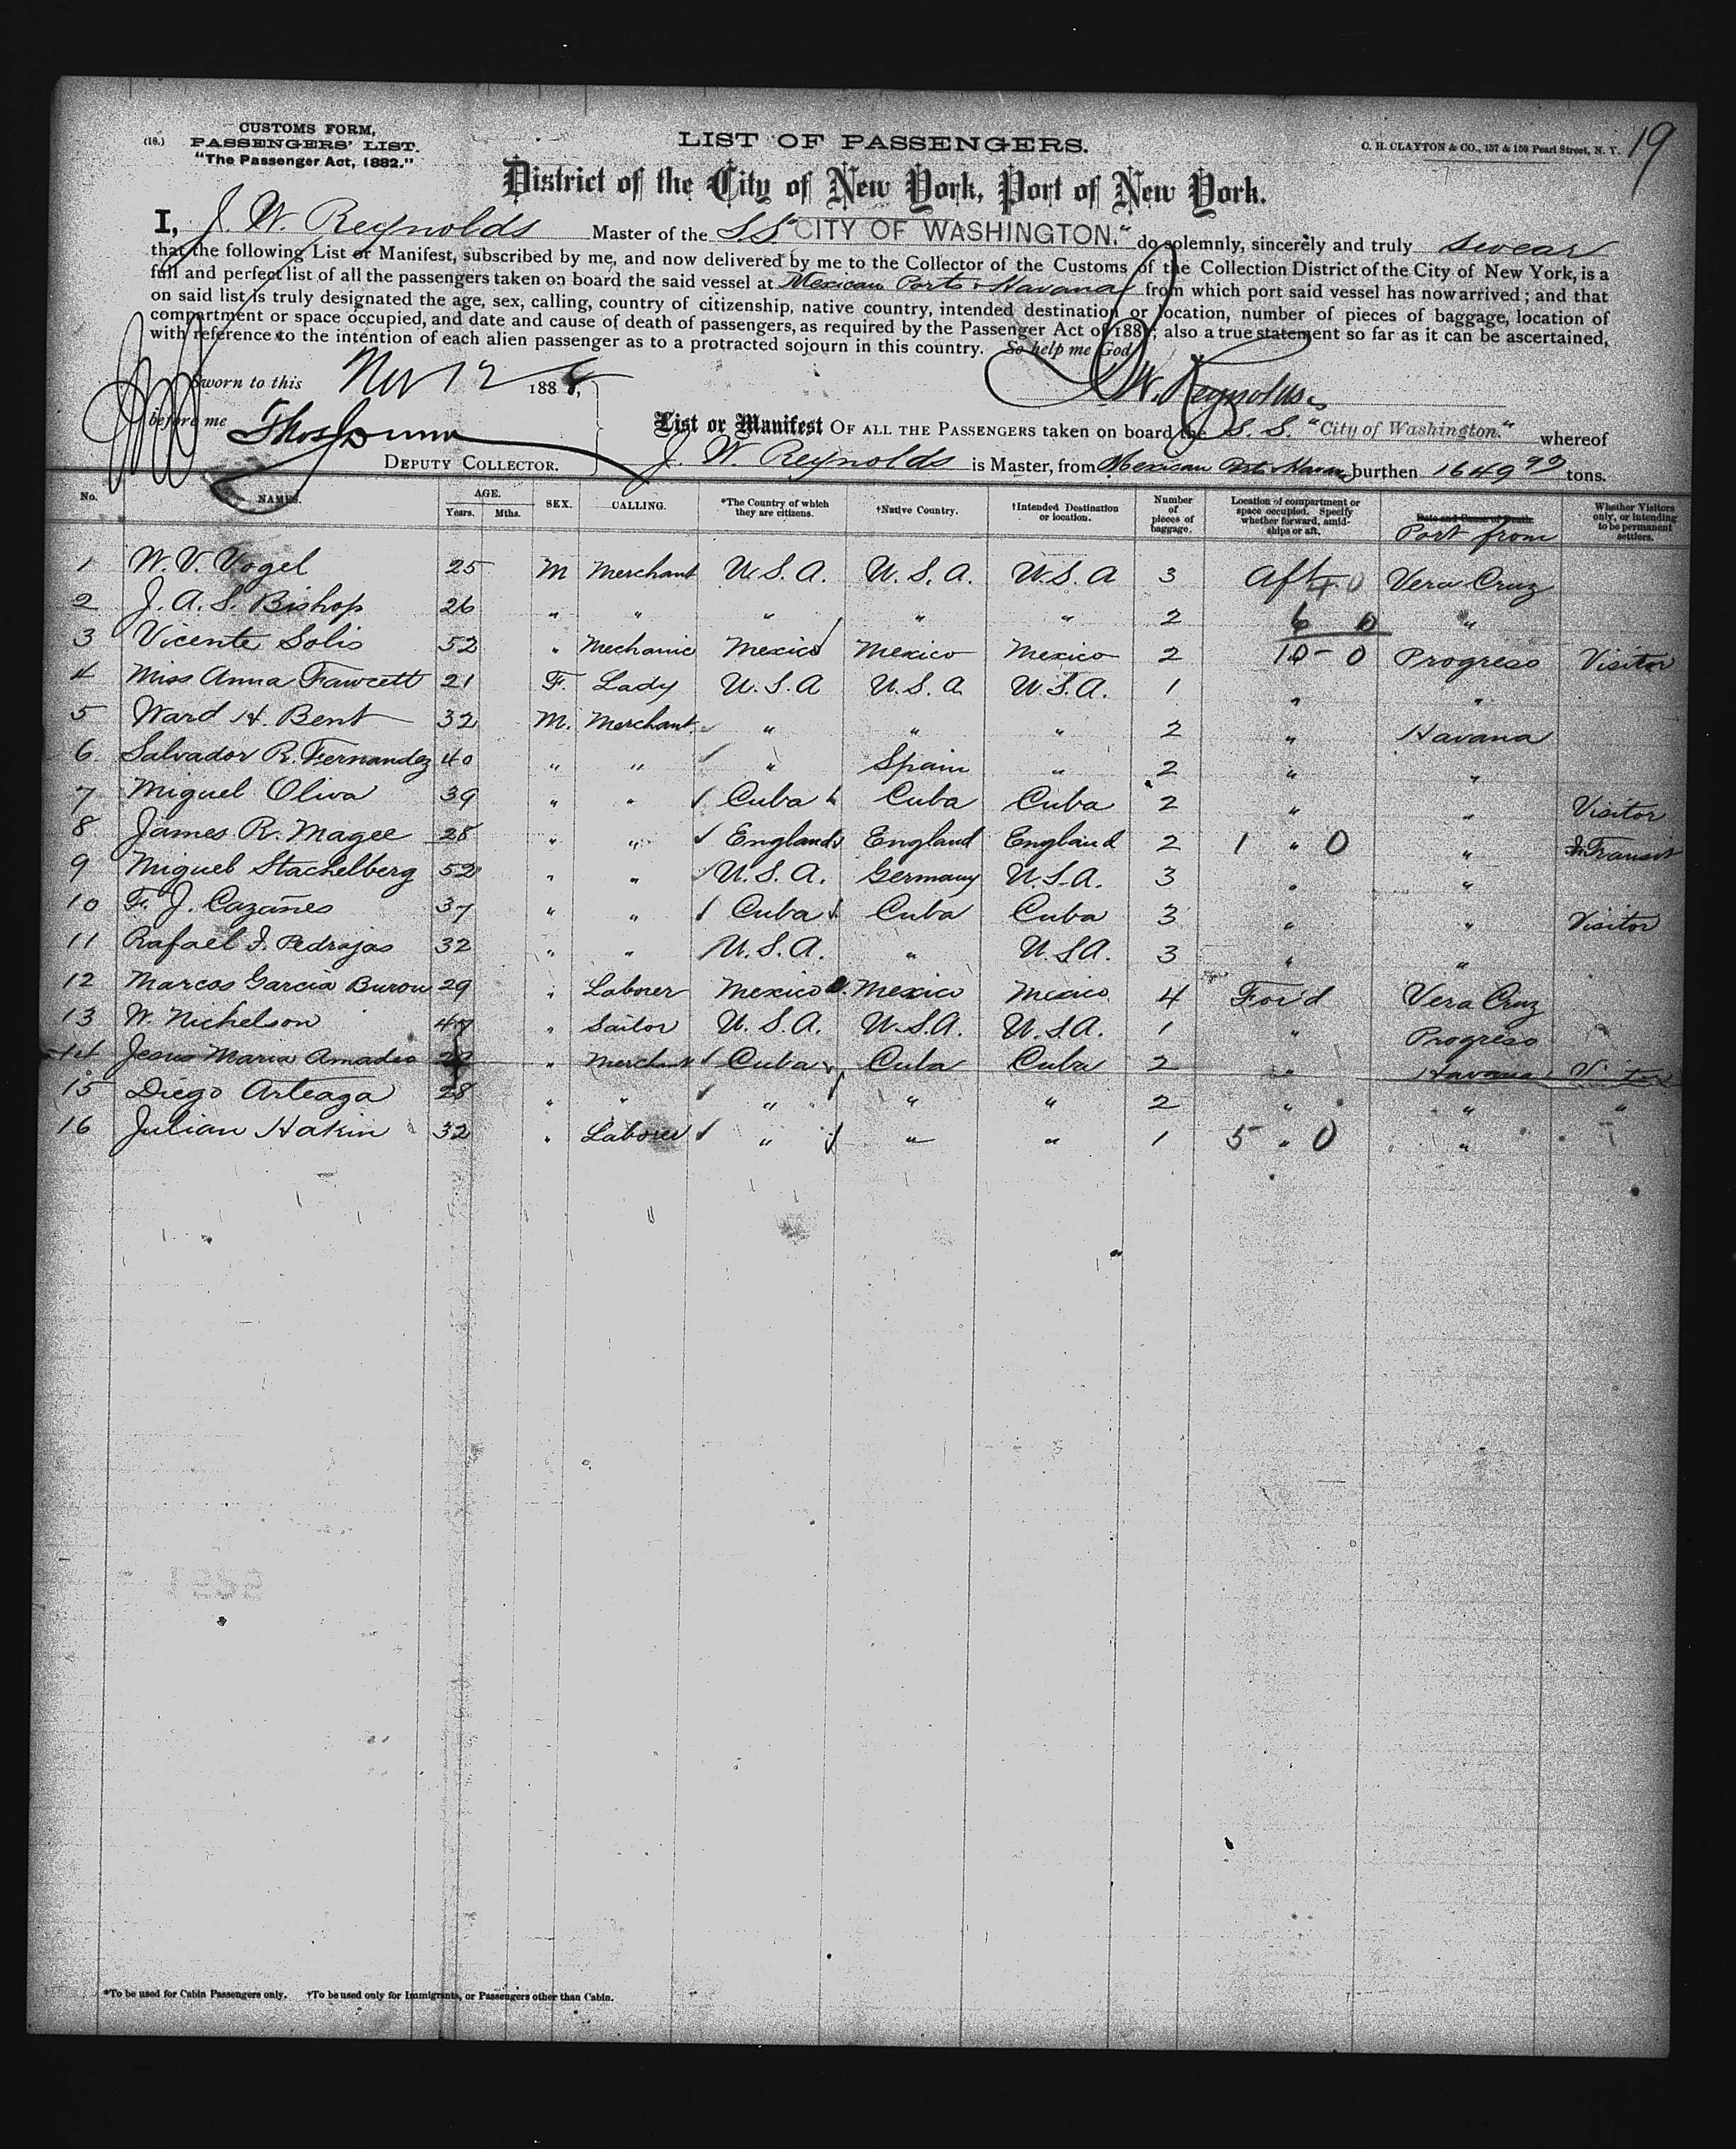 19
CUSTOMS FORM,
(18.) PASSENGERS' LIST.
"The Passenger Act, 1882."
LIST OF PASSENGERS.
C. H. CLAYTON & CO., 157 & 159 Pearl Street, N. Y.
District of the City of New York, Port of New York.
I, J. W. Reynolds Master of the S.S. "CITY OF WASHINGTON." do solemnly, sincerely and truly swear
that the following List or Manifest, subscribed by me, and now delivered by me to the Collector of the Customs of the Collection District of the City of New York, is a
full and perfect list of all the passengers taken on board the said vessel at Mexican Ports & Havana from which port said vessel has now arrived; and that
on said list is truly designated the age, sex, calling, country of citizenship, native country, intended destination or location, number of pieces of baggage, location of
compartment or space occupied, and date and cause of death of passengers, as required by the Passenger Act of 1882; also a true statement so far as it can be ascertained,
with reference to the intention of each alien passenger as to a protracted sojourn in this country. So help me God.
Sworn to this Nov 12 188
J. W. Reynolds
before me
DEPUTY COLLECTOR.
List or Manifest OF ALL THE PASSENGERS taken on board the S. S. "City of Washington." whereof
J. W. Reynolds is Master, from Mexican Ports & Havana burthen 1649 99 tons.
No. NAMES. AGE. Years. Mths. SEX. CALLING. *The Country of which they are citizens. †Native Country. †Intended Destination or location. Number of pieces of baggage. Location of compartment or space occupied. Specify whether forward, amidships or aft. Date and Cause of Death. Port from Whether Visitors only, or intending to be permanent settlers.
1 W. V. Vogel 25 M Merchant U.S.A. U.S.A. U.S.A 3 Aft 4 0 Vera Cruz
2 J. A. S. Bishop 26 " " " " " 2 6 0 "
3 Vicente Solis 52 " Mechanic Mexico Mexico Mexico 2 10 - 0 Progreso Visitor
4 Miss Anna Fawcett 21 F. Lady U.S.A U.S.A. U.S.A. 1 " "
5 Ward H. Bent 32 M. Merchant " " " 2 " Havana
6 Salvador R. Fernandez 40 " " " Spain " 2 " "
7 Miguel Oliva 39 " " Cuba Cuba Cuba 2 " " Visitor
8 James R. Magee 28 " " England England England 2 1 " 0 " In Transit
9 Miguel Stachelberg 52 " " U.S.A. Germany U.S.A. 3 " "
10 F. J. Cazañes 37 " " Cuba Cuba Cuba 3 " " Visitor
11 Rafael I. Pedrajas 32 " " U.S.A. " U.S.A. 3 " "
12 Marcos Garcia Buron 29 " Laborer Mexico Mexico Mexico 4 For'd Vera Cruz
13 W. Nichelson 47 " Sailor U.S.A. U.S.A. U.S.A. 1 " Progreso
14 Jesus Maria Amadeo " Merchant Cuba Cuba Cuba 2 " Havana
15 Diego Arteaga 28 " " " " " 2 " " "
16 Julian Hakin 32 " Laborer " " " 1 5 " 0 "
*To be used for Cabin Passengers only. †To be used only for Immigrants, or Passengers other than Cabin.